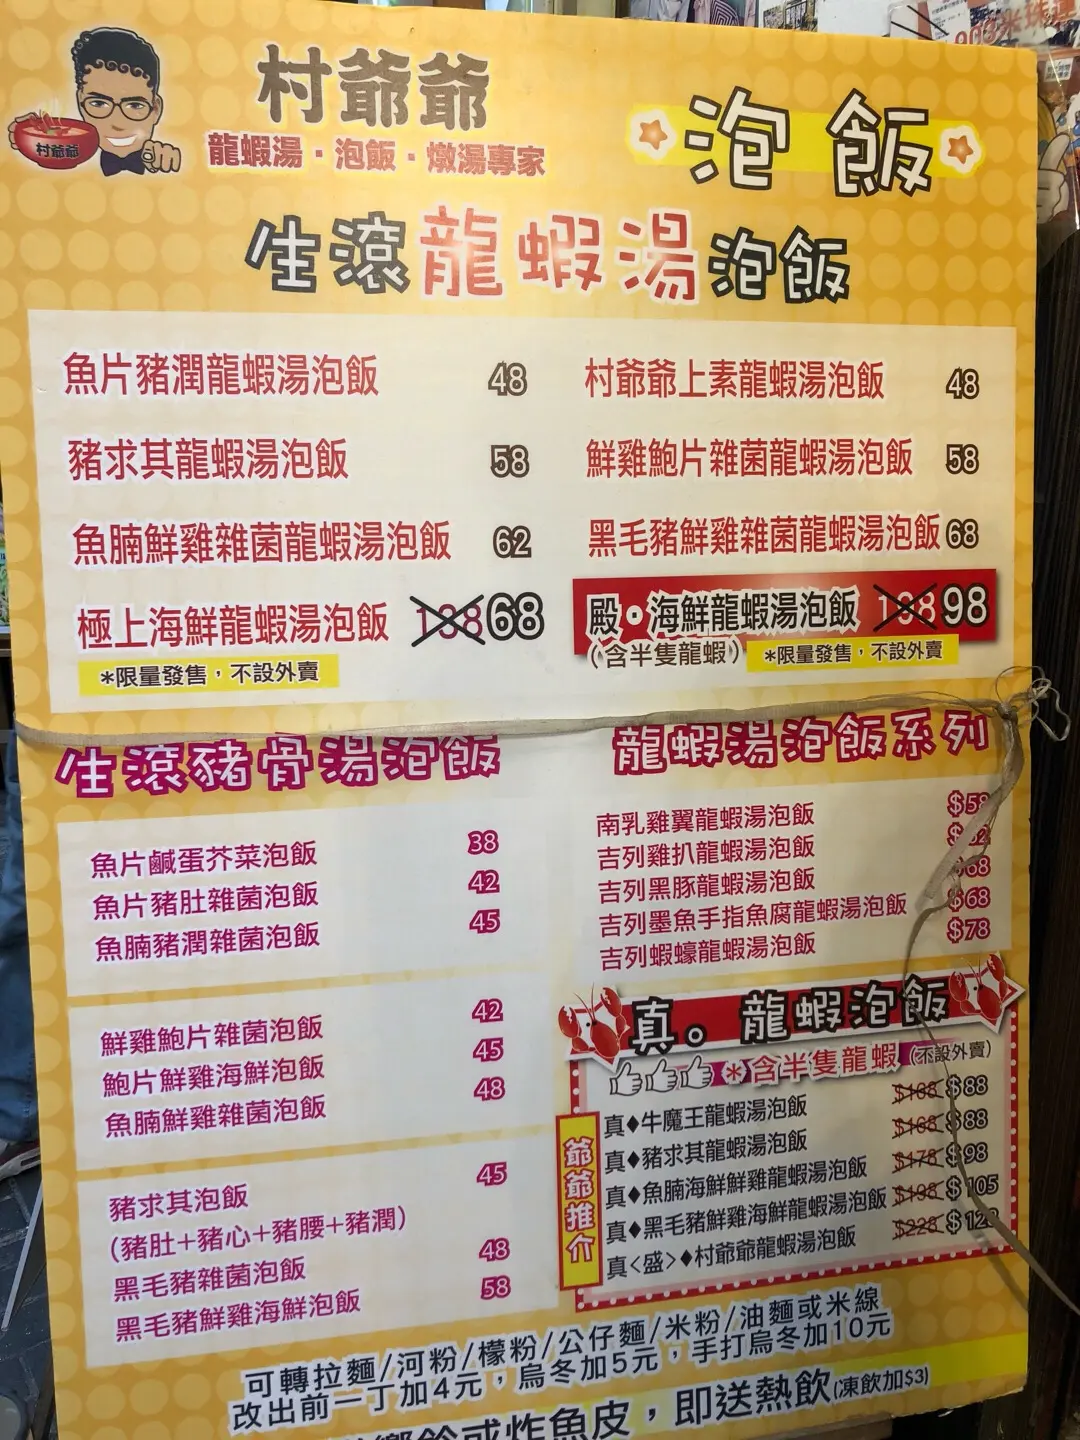 村爺爺
龍蝦湯・泡飯・燉湯專家
村爺爺
泡飯
生滾龍蝦湯泡飯
魚片豬潤龍蝦湯泡飯 48
豬求其龍蝦湯泡飯 58
魚腩鮮雞雜菌龍蝦湯泡飯 62
極上海鮮龍蝦湯泡飯 138 68
*限量發售，不設外賣
村爺爺上素龍蝦湯泡飯 48
鮮雞鮑片雜菌龍蝦湯泡飯 58
黑毛豬鮮雞雜菌龍蝦湯泡飯 68
殿・海鮮龍蝦湯泡飯 198 98
(含半隻龍蝦) *限量發售，不設外賣
生滾豬骨湯泡飯
魚片鹹蛋芥菜泡飯 38
魚片豬肚雜菌泡飯 42
魚腩豬潤雜菌泡飯 45
鮮雞鮑片雜菌泡飯 42
鮑片鮮雞海鮮泡飯 45
魚腩鮮雞雜菌泡飯 48
豬求其泡飯 45
(豬肚+豬心+豬腰+豬潤)
黑毛豬雜菌泡飯 48
黑毛豬鮮雞海鮮泡飯 58
龍蝦湯泡飯系列
南乳雞翼龍蝦湯泡飯 $58
吉列雞扒龍蝦湯泡飯
吉列黑豚龍蝦湯泡飯 $68
吉列墨魚手指魚腐龍蝦湯泡飯 $68
吉列蝦蠔龍蝦湯泡飯 $78
真。龍蝦泡飯
*含半隻龍蝦 (不設外賣)
爺爺推介
真♦牛魔王龍蝦湯泡飯 $168 $88
真♦豬求其龍蝦湯泡飯 $168 $88
真♦魚腩海鮮鮮雞龍蝦湯泡飯 $178 $98
真♦黑毛豬鮮雞海鮮龍蝦湯泡飯 $198 $105
真<盛>♦村爺爺龍蝦湯泡飯 $228
可轉拉麵/河粉/檬粉/公仔麵/米粉/油麵或米線
改出前一丁加4元，烏冬加5元，手打烏冬加10元
或炸魚皮，即送熱飲(凍飲加$3)